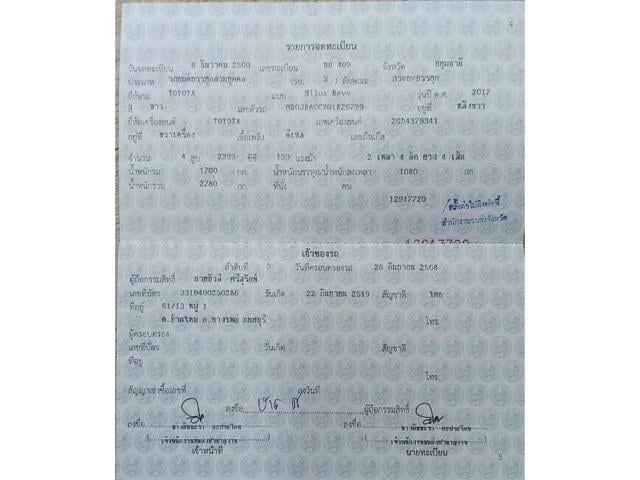 4
รายการจดทะเบียน
วันจดทะเบียน 6 ธันวาคม 2560 เลขทะเบียน 409 จังหวัด ปทุมธานี
ประเภท รถยนต์บรรทุกส่วนบุคคล (รย. 3 ) ลักษณะ กระบะบรรทุก
ยี่ห้อรถ TOYOTA แบบ Hilux Revo รุ่นปี ค.ศ. 2017
สี ขาว เลขตัวรถ อยู่ที่
ยี่ห้อเครื่องยนต์ TOYOTA เลขเครื่องยนต์ 2GD4379341
อยู่ที่ ขวาเครื่อง เชื้อเพลิง ดีเซล เลขถังแก๊ส
จำนวน 4 สูบ 2393 ซีซี 150 แรงม้า 2 เพลา 4 ล้อ ยาง 4 เส้น
น้ำหนักรถ 1700 กก. น้ำหนักบรรทุก/น้ำหนักลงเพลา 1080 กก
น้ำหนักรวม 2780 กก. ที่นั่ง คน
12917720
สำนักงานขนส่งจังหวัด
เจ้าของรถ
ลำดับที่ 3 วันที่ครอบครองรถ 26 กันยายน 2568
ผู้ถือกรรมสิทธิ์
เลขที่บัตร 3310400250286 วันเกิด 22 กันยายน 2519 สัญชาติ ไทย
ที่อยู่ 61/13 หมู่ 1
โทร.
ผู้ครอบครอง
เลขที่บัตร วันเกิด สัญชาติ
ที่อยู่
โทร.
สัญญาเช่าซื้อเลขที่ ลงวันที่
ลงชื่อ ผู้ถือกรรมสิทธิ์
ลงชื่อ
เจ้าหน้าที่ นายทะเบียน
5